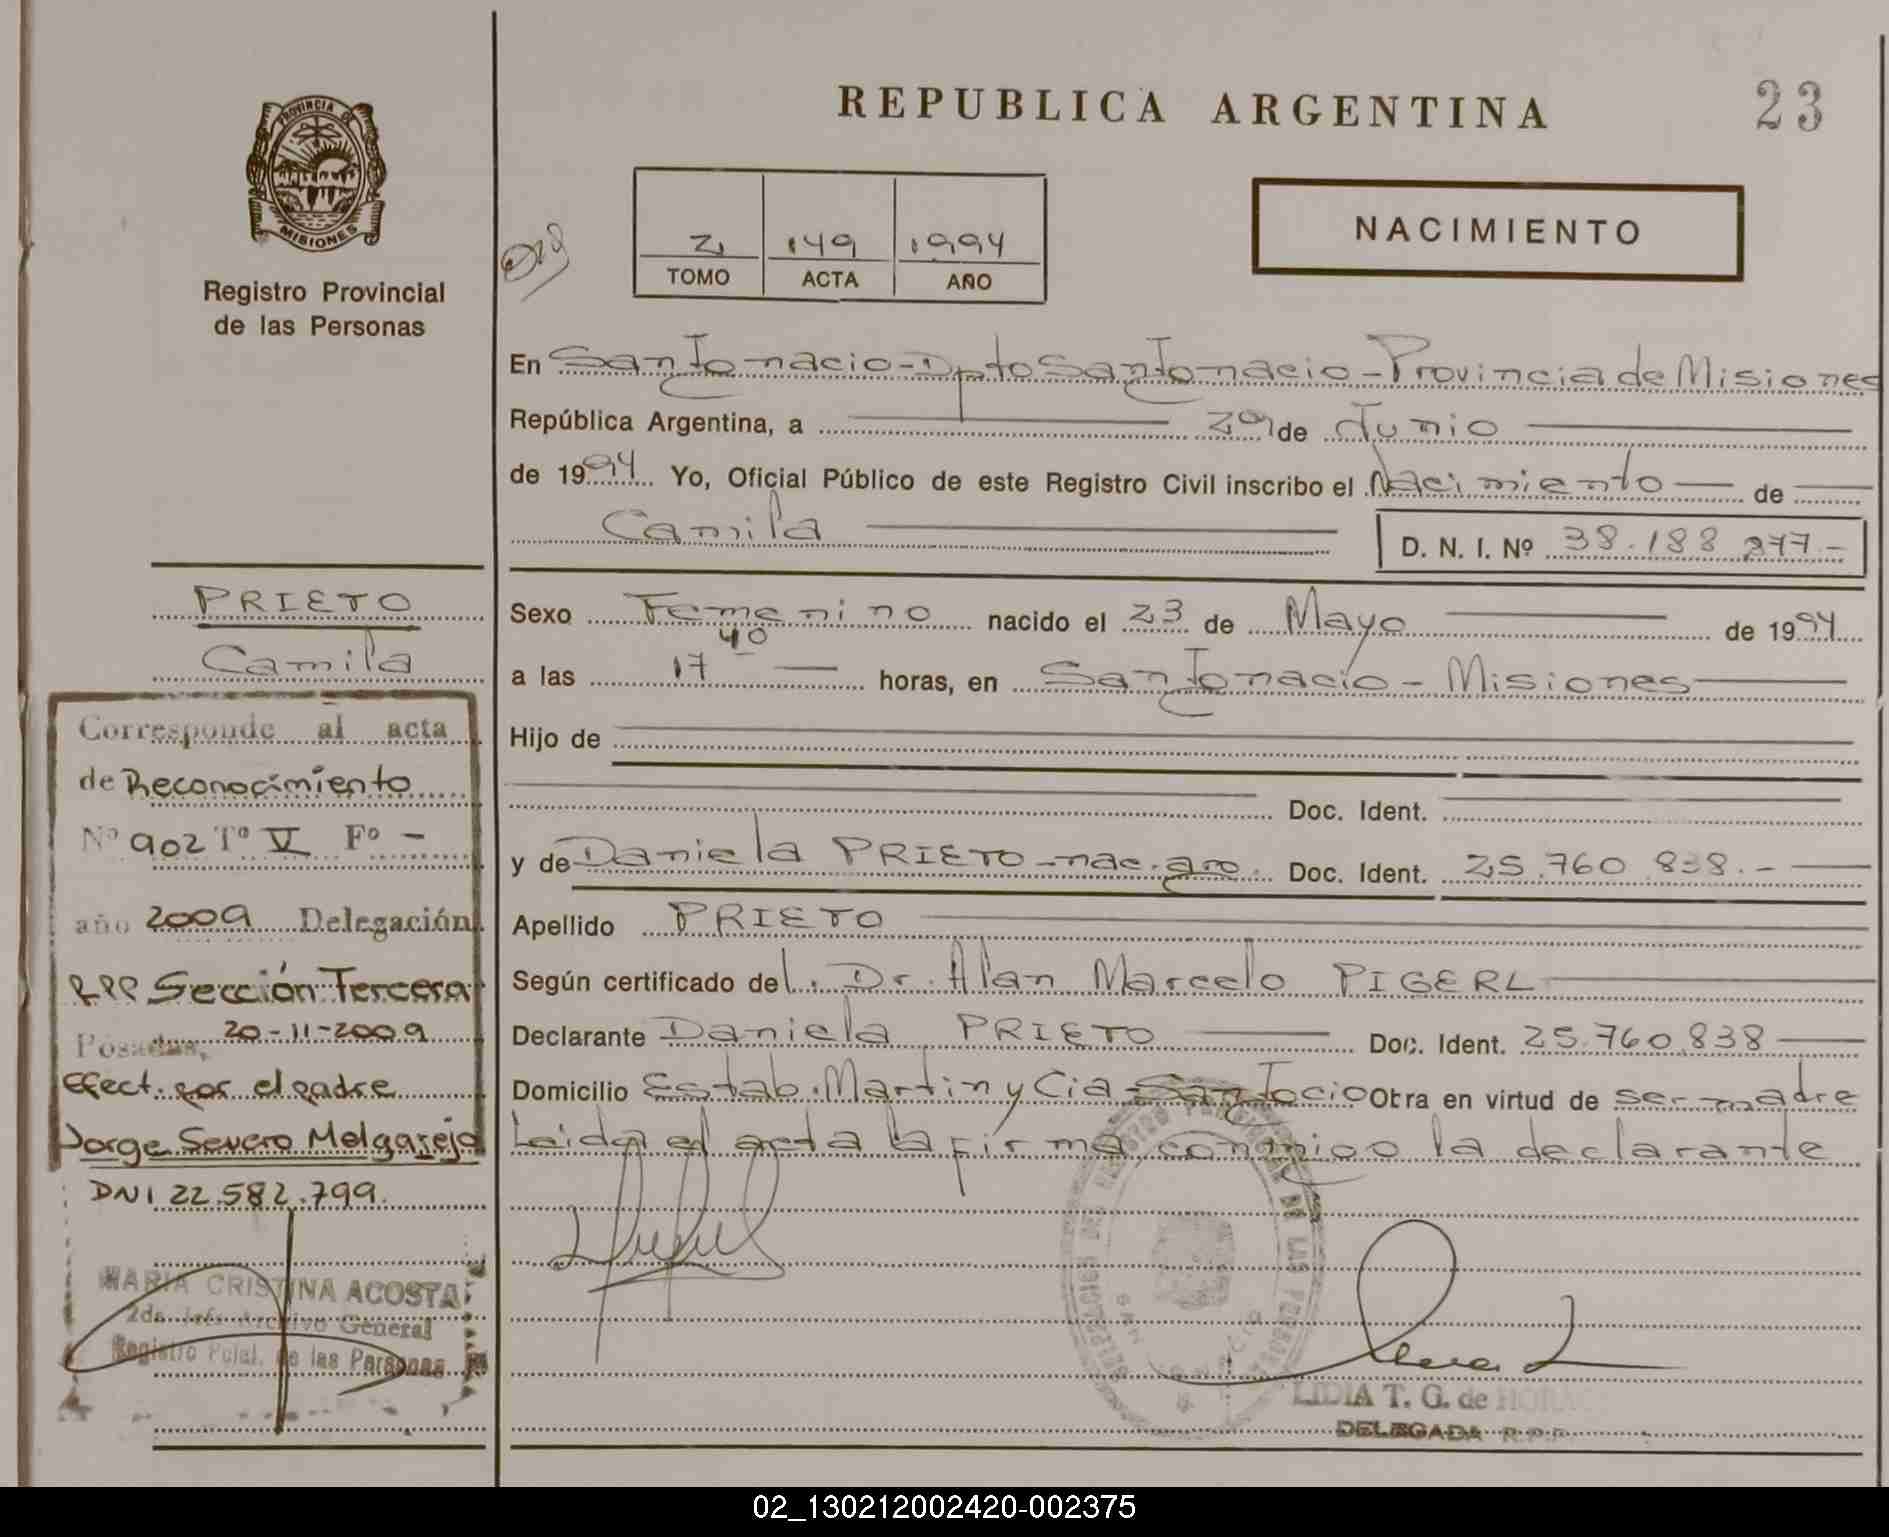 REPUBLICA ARGENTINA
23
PROVINCIA DE
MISIONES
Registro Provincial
de las Personas
2 149 1994
TOMO ACTA AÑO
NACIMIENTO
En San Ignacio - Dpto San Ignacio - Provincia de Misiones
República Argentina, a 29 de Junio
de 1994 Yo, Oficial Público de este Registro Civil inscribo el Nacimiento de
Camila D. N. I. Nº 38.188.277.-
Sexo Femenino nacido el 23 de Mayo de 1994
a las 17 40 horas, en San Ignacio - Misiones
Hijo de
Doc. Ident.
y de Daniela PRIETO - nac. arg. Doc. Ident. 25.760.838.-
Apellido PRIETO
Según certificado del. Dr. Alan Marcelo PIGERL
Declarante Daniela PRIETO Doc. Ident. 25.760.838
Domicilio Estab. Martin y Cia - San Igcio Obra en virtud de ser madre
Leida el acta la firma conmigo la declarante
PRIETO
Camila
Corresponde al acta
de Reconocimiento
Nº 902 Tº V Fº -
año 2009 Delegación
RPP Sección Tercera
Posadas, 20-11-2009
Efect. por el padre
Jorge Severo Melgarejo
DNI 22.582.799.
MARIA CRISTINA ACOSTA
2da. Jefe Archivo General
Registro Pcial. de las Personas
DE LAS PERSONAS
SAN IGNACIO
LIDIA T. G. de
DELEGADA R.P.P.
02_130212002420-002375